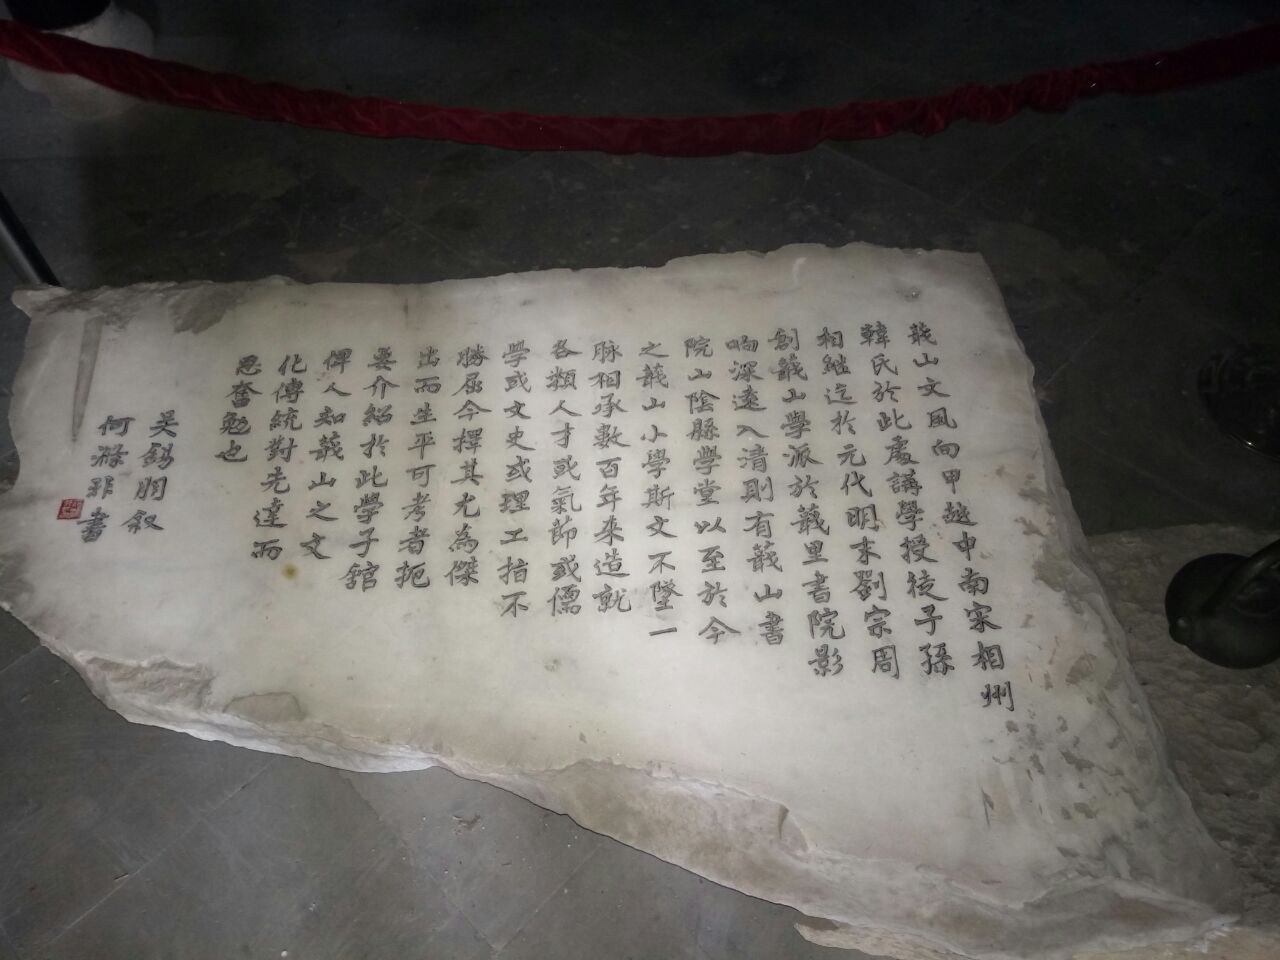 蕺山文风向甲越中南宋相州
韓氏於此處講學授徒子孫
相繼迄於元代明末劉宗周
創蕺山學派於蕺里書院影
响深遠入清則有蕺山書
院山陰縣學堂以至於今
之蕺山小學斯文不墜一
脉相承數百年來造就
各類人才或氣節或儒
學或文史或理工指不
勝屈今擇其尤為傑
出而生平可考者扼
要介紹於此學子館
俾人知蕺山之文
化傳統對先達而
思奮勉也
吳錫
叙
何滌非書